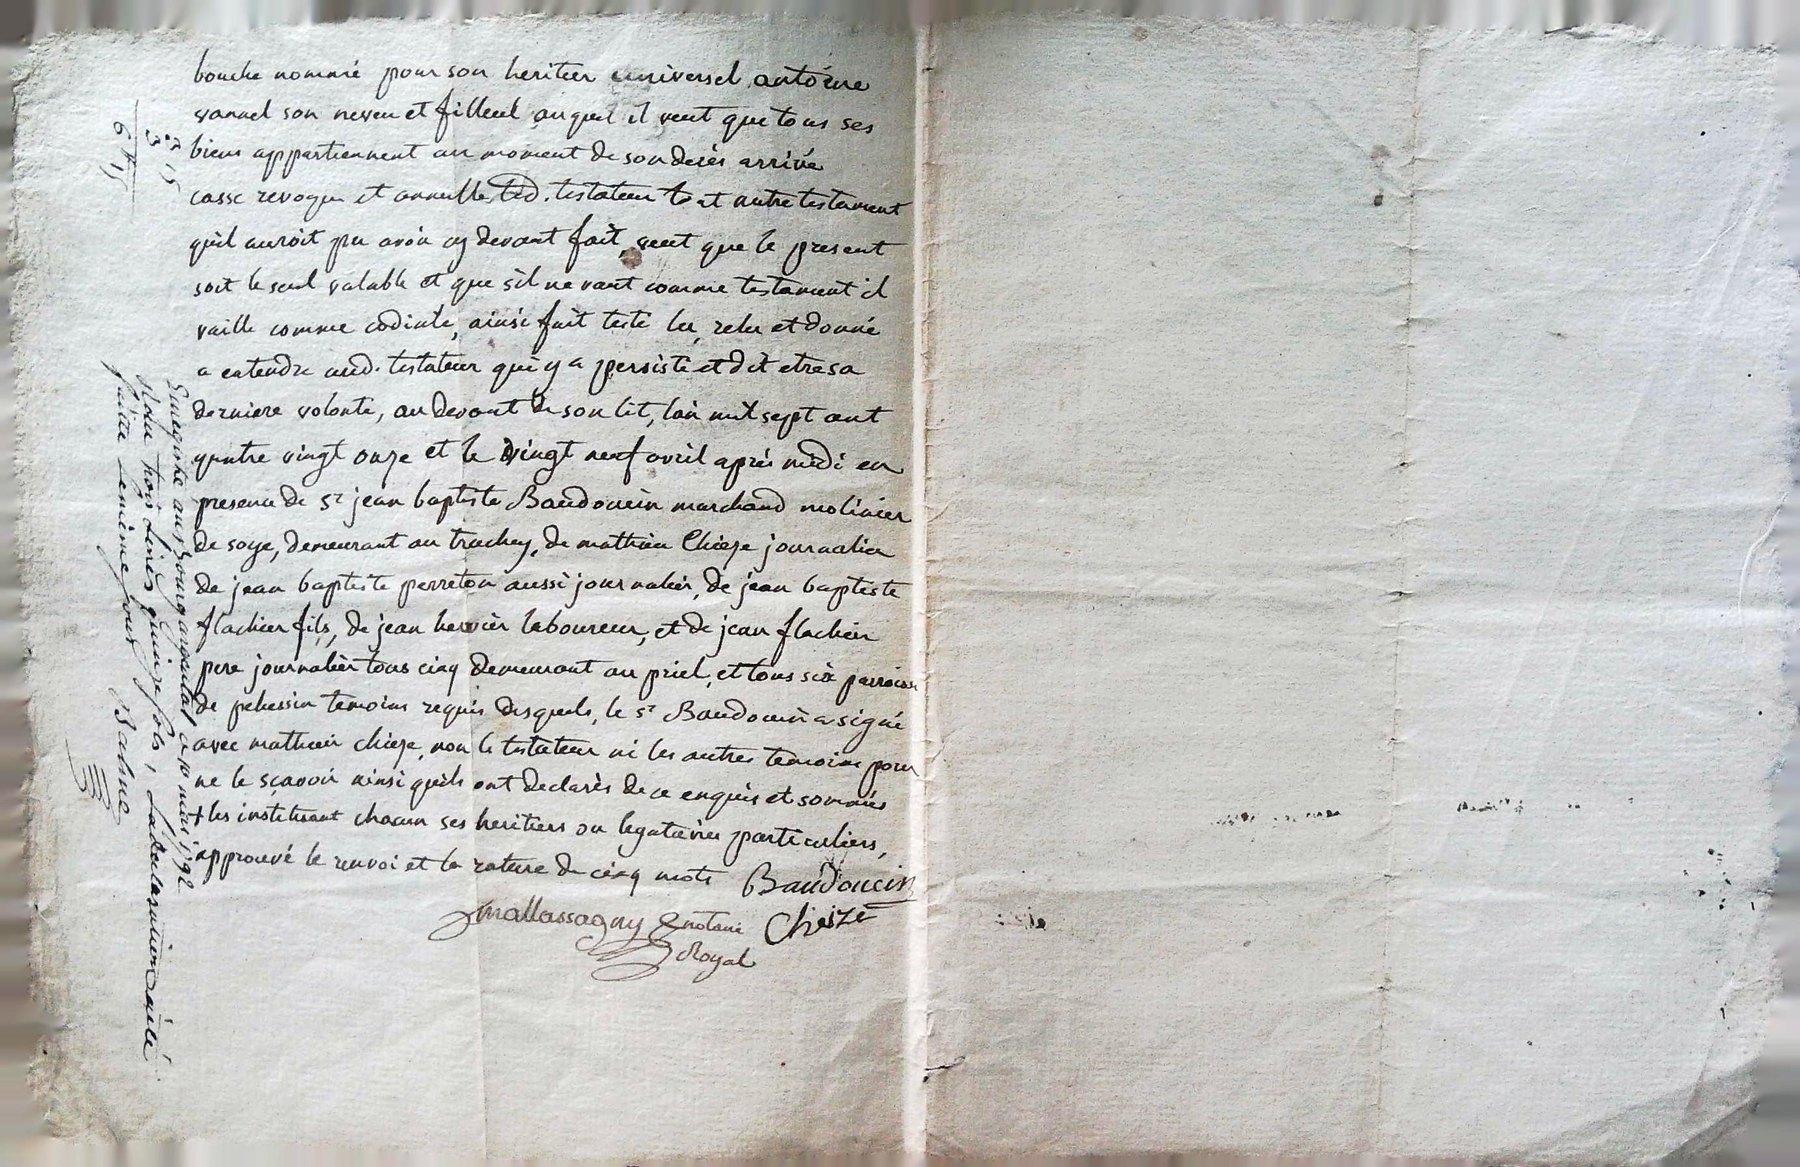 bouche nommé pour son heritier universel antoine
vanel son neveu et filleul auquel il veut que tous ses
biens appartiennent au moment de son decès arrivé
casse revoque et annulle led. testateur tout autre testament
quil auroit pu avoir cy devant fait, veut que le present
soit le seul valable et que sil ne vaut comme testament il
vaille comme codicile, ainsi fait testé lu, relu et donné
a entendre aud. testateur qui y a persisté et dit etre sa
derniere volonté, au devant de son lit, lan mil sept cent
quatre vingt onze et le vingt neuf avril après midi en
presence de sr jean baptiste Baudouin marchand molinier
de soye, demeurant au trachey, de mathieu Chieze journalier
de jean baptiste perreton aussi journalier, de jean baptiste
flachier fils, de jean hervier laboureur, et de jean flachier
pere journalier tous cinq demeurant au priel, et tous six parroisse
de pelussin temoins requis desquels, le sr Baudouin a signé
avec mathieu chieze, non le testateur ni les autres temoins pour
ne le sçavoir ainsi quils ont declarés de ce enquis et sommés
+ les instituant chacun ses heritiers ou legataires particuliers,
approuvé le renvoi et la rature de cinq mots Baudoucin
Mallassagny notaire Cheize
Royal
3 15
3
6 # 15
Enregistré au Bourgargental ce 10 mai 1792
Reçu trois livres quinze sols,
faitte le même jour Barine